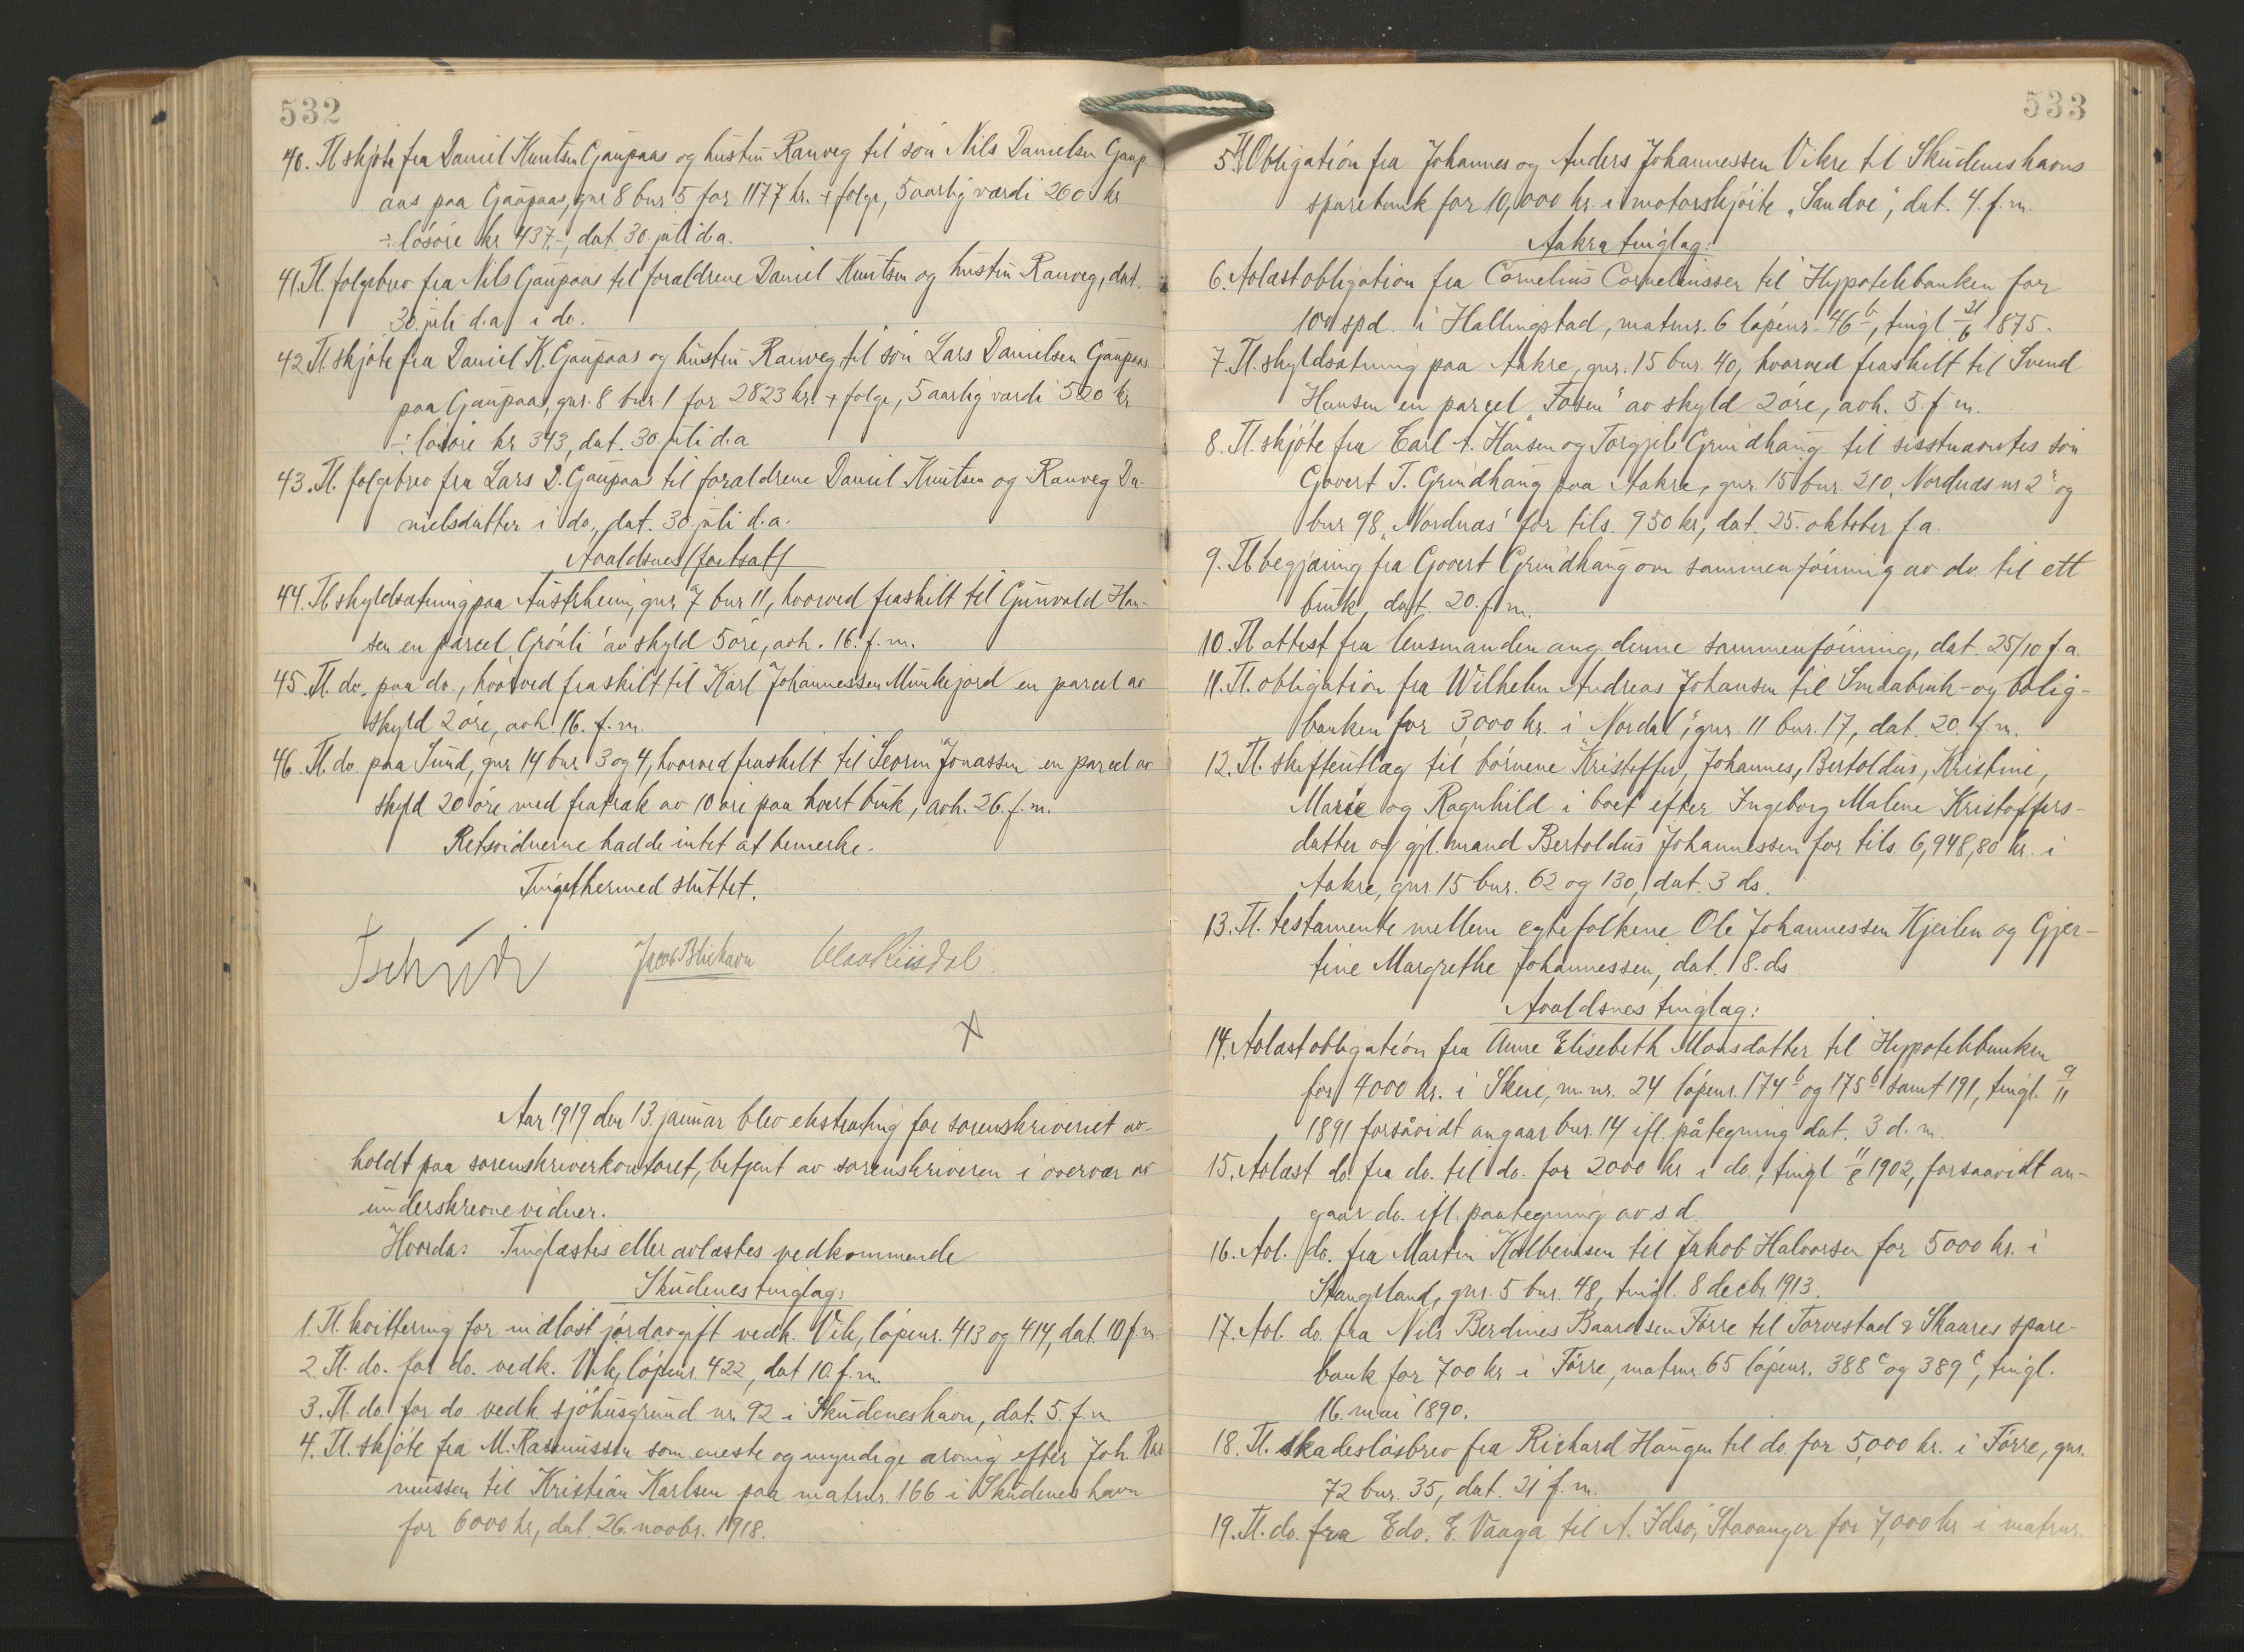 532
40. Tl. skjöte fra Daniel Knutsen Gaupaas og hustru Ranveg til sön Nils Danielsen Gaup-
aas paa Gaupaas, gnr 8 bnr 5 for 1177 kr. + folge, 5 aarlig værdi 260 kr
÷ lösöre kr 437,-, dat. 30. juli d.a.
41. Tl. folgebrev fra Nils Gaupaas til foraldrene Daniel Knutsen og hustru Ranveg, dat.
30. juli d.a. i do.
42. Tl. skjöte fra Daniel K. Gaupaas og hustru Ranveg til sön Lars Danielsen Gaupaas
paa Gaupaas, gnr. 8 bnr. 1 for 2823 kr. + folge, 5 aarlig værdi 520 kr
÷ lösöre kr 343, dat. 30 juli d.a
43. Tl. folgebrev fra Lars D. Gaupaas til foraldrene Daniel Knutsen og Ranveg Da-
nielsdatter i do., dat. 30. juli d.a.
Avaldsnes (fortsat)
44. Tl. skyldsætning paa Austrheim, gnr 7 bnr 11, hvorved fraskilt til Gunvald Han-
sen en parcel "Grönli" av skyld 5 öre, avh. 16. f. m.
45. Tl. do. paa do., hvorved fraskilt til Karl Johannessen Munkejord en parcel av
skyld 2 öre, avh. 16. f. m.
46. Tl. do. paa Sund, gnr 14 bnr 3 og 4, hvorved fraskilt til Severin Jonassen en parcel av
skyld 20 öre med fratrak av 10 öre paa hvert bruk, avh. 26. f. m.
Retsvidnerne hadde intet at bemerke.
Tinget hermed sluttet.
Jacob Blikavn
X
Aar 1919 den 13. januar blev ekstrating for sorenskriveriet av-
holdt paa sorenskriverkontoret, betjent av sorenskriveren i overvær av
underskrevne vidner.
Hvorda: Tinglæstes eller avlæstes vedkommende
Skudenes tinglag:
1. Tl. kvittering for indlöst jordavgift vedk. Vik, löpenr. 413 og 414, dat. 10 f. m.
2. Tl. do. for do. vedk. Vik, löpenr. 422, dat 10. f. m.
3. Tl. do. for do. vedk. sjöhusgrund nr. 92 i Skudeneshavn, dat. 5. f. m
4. Tl. skjöte fra M. Rasmussen som eneste og myndige arving efter Joh. Ras-
mussen til Kristian Karlsen paa matrnr. 166 i Skudeneshavn
for 6000 kr, dat. 26. novbr. 1918.
533
5. Tl. Obligation fra Johannes og Anders Johannessen Vikre til Skudeneshavns
sparebank for 10,000 kr. i motorskjöite "Sandve", dat. 4. f. m.
Aakra tinglag:
6. Avlæst obligation fra Cornelius Corneliussen til Hypotekbanken for
100 spd. i Hallingstad, matrnr. 6 löpenr. 46 b, tingl. 21/6 1875.
7. Tl. skyldsætning paa Aakre, gnr. 15 bnr. 40, hvorved fraskilt til Svend
Hansen en parcel "Fosen" av skyld 2 öre, avh. 5. f. m.
8. Tl. skjöte fra Carl A. Hansen og Torgjels Grindhaug til sisstnævntes sön
Govert T. Grindhaug paa Aakre, gnr. 15 bnr. 210 "Nordnæs nr 2" og
bnr 98 "Nordnæs" for tils. 950 kr, dat. 25. oktober f. a.
9. Tl. begjæring fra Govert Grindhaug om sammenföining av do. til ett
bruk, dat. 20. f. m.
10. Tl. attest fra lensmanden ang. denne sammenföining, dat. 25/10 f. a.
11. Tl. obligation fra Wilhelm Andreas Johansen til Smaabruk- og bolig-
banken for 3000 kr. i "Nordal", gnr. 11 bnr. 17, dat. 20. f. m.
12. Tl. skifteutlæg til börnene Kristoffer, Johannes, Bertoldus, Kristine,
Marie og Ragnhild i boet efter Ingeborg Malene Kristoffers-
datter og gjl. mand Bertoldus Johannessen for tils. 6,948,80 kr. i
Aakre, gnr 15 bnr. 62 og 130, dat. 3 ds.
13. Tl. testamente mellem egtefolkene Ole Johannessen Kjeilen og Gjer-
tine Margrethe Johannessen, dat. 8. ds
Avaldsnes tinglag:
14. Avlæst obligation fra Anne Elisebeth Monsdatter til Hypotekbanken
for 4000 kr. i Skeie, m.nr. 24 löpenr. 174 b og 175 b samt 191, tingl. 9/11
1891 forsåvidt angaar bnr. 14 ifl. påtegning dat. 3 d. m.
15. Avlæst do. fra do. til do. for 2000 kr i do., tingl 11/8 1902, forsaavidt an-
gaar do. ifl. paategning av s. d.
16. Avl. do. fra Martin Kolbeinsen til Jakob Halvorsen for 5000 kr. i
Stangeland, gnr. 5 bnr. 48, tingl. 8 decbr. 1913.
17. Avl. do. fra Nils Berdines Baardsen Förre til Torvestad & Skaares spare-
bank for 700 kr i Förre, matrnr. 65 löpenr. 388 c og 389 c, tingl.
16. mai 1890.
18. Tl. skadeslösbrev fra Richard Haugen til do. for 5,000 kr. i Förre, gnr.
72 bnr. 35, dat. 21 f. m.
19. Tl. do. fra Edv. E. Vaaga til A. Idsö, Stavanger for 7,000 kr i matrnr.